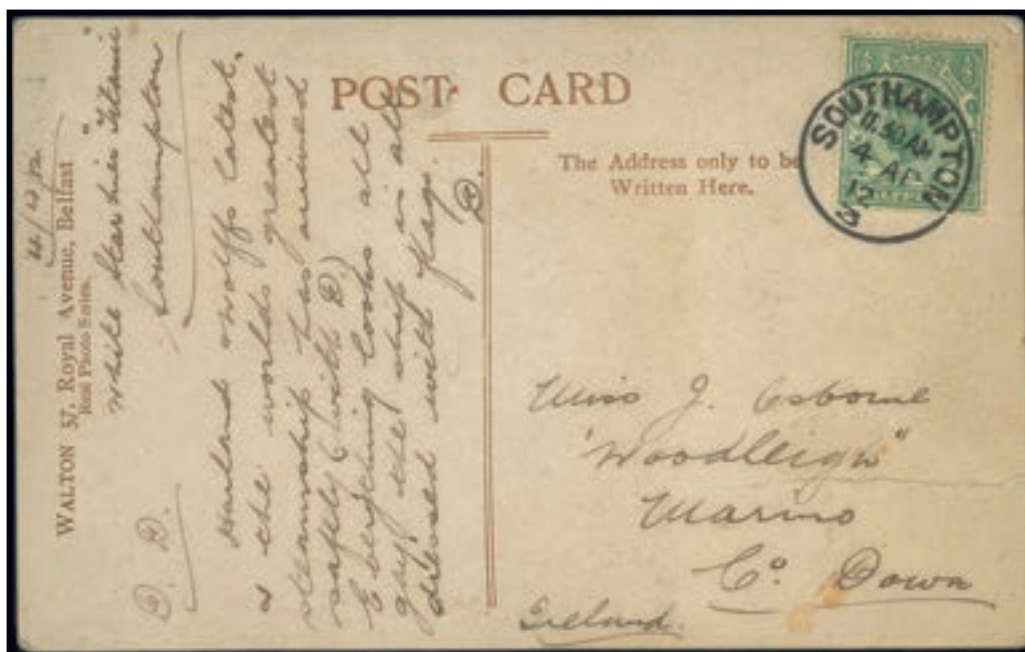 POST CARD
The Address only to be
Written Here.
SOUTHAMPTON
11.30 AM
4 AP
12
3
WALTON 57, Royal Avenue, Belfast
Real Photo Series.
White Star liner "Titanic"
Southampton
Harland & Wolffs latest,
& the worlds greatest
steamship has arrived
safely (with D.)
Everything looks all
gay, the ship is all
dressed with flags.
D.
Miss J. Osborne
"Woodleigh"
Marino
Co. Down
Ireland.